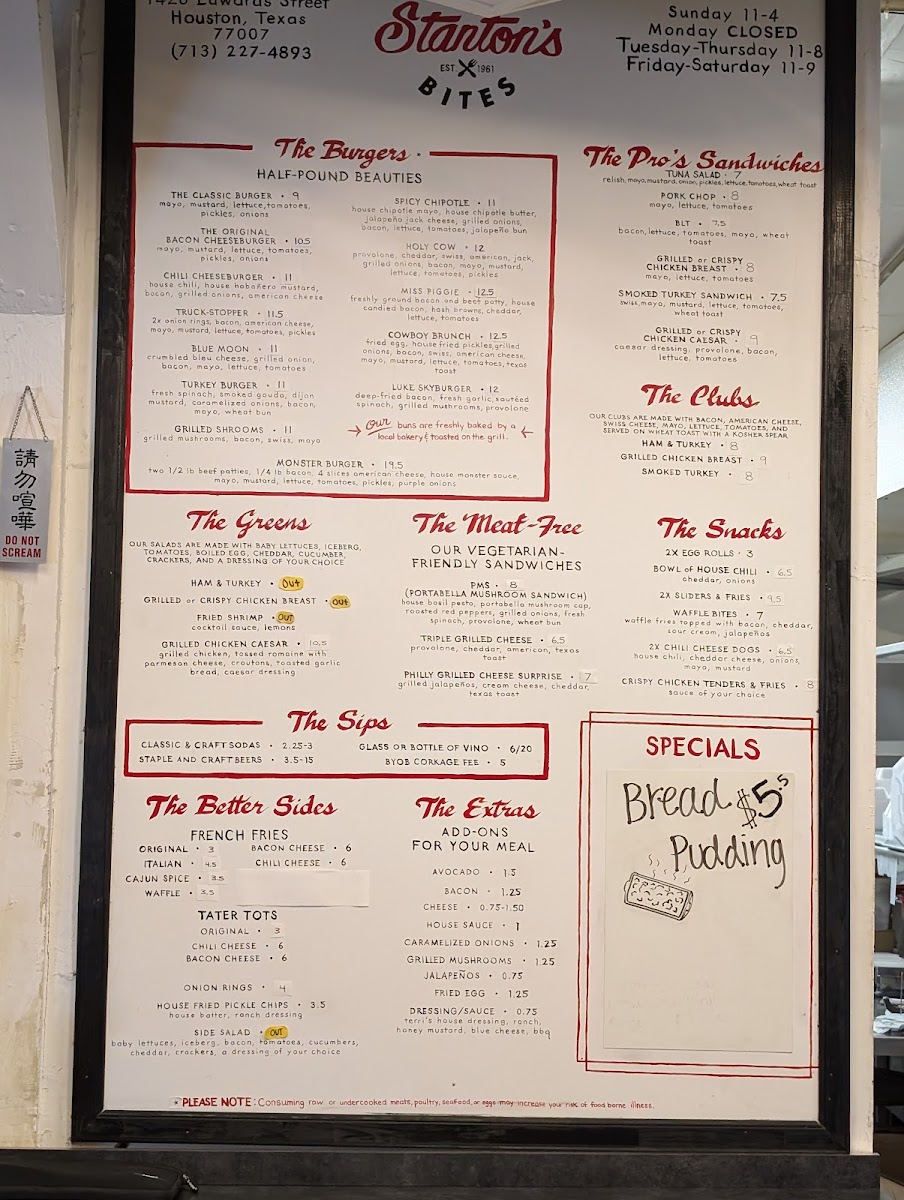 1420 Edwards Street
Houston, Texas
77007
(713) 227-4893
Stanton's
EST 1961
BITES
Sunday 11-4
Monday CLOSED
Tuesday-Thursday 11-8
Friday-Saturday 11-9
The Burgers
HALF-POUND BEAUTIES
THE CLASSIC BURGER • 9
mayo, mustard, lettuce, tomatoes,
pickles, onions
THE ORIGINAL
BACON CHEESEBURGER • 10.5
mayo, mustard, lettuce, tomatoes,
pickles, onions
CHILI CHEESEBURGER • 11
house chili, house habañero mustard,
bacon, grilled onions, american cheese
TRUCK-STOPPER • 11.5
2x onion rings, bacon, american cheese,
mayo, mustard, lettuce, tomatoes, pickles
BLUE MOON • 11
crumbled bleu cheese, grilled onion,
bacon, mayo, lettuce, tomatoes
TURKEY BURGER • 11
fresh spinach, smoked gouda, dijon
mustard, caramelized onions, bacon,
mayo, wheat bun
GRILLED SHROOMS • 11
grilled mushrooms, bacon, swiss, mayo
SPICY CHIPOTLE • 11
house chipotle mayo, house chipotle butter,
jalapeño jack cheese, grilled onions,
bacon, lettuce, tomatoes, jalapeño bun
HOLY COW • 12
provolone, cheddar, swiss, american, jack,
grilled onions, bacon, mayo, mustard,
lettuce, tomatoes, pickles
MISS PIGGIE • 12.5
freshly ground bacon and beef patty, house
candied bacon, hash browns, cheddar,
lettuce, tomatoes
COWBOY BRUNCH • 12.5
fried egg, house fried pickles, grilled
onions, bacon, swiss, american cheese,
mayo, mustard, lettuce, tomatoes, texas
toast
LUKE SKYBURGER • 12
deep-fried bacon, fresh garlic, sautéed
spinach, grilled mushrooms, provolone
Our buns are freshly baked by a
local bakery & toasted on the grill.
MONSTER BURGER • 19.5
two 1/2 lb beef patties, 1/4 lb bacon, 4 slices american cheese, house monster sauce,
mayo, mustard, lettuce, tomatoes, pickles, purple onions
The Pro's Sandwiches
TUNA SALAD • 7
relish, mayo, mustard, onion, pickles, lettuce, tomatoes, wheat toast
PORK CHOP • 8
mayo, lettuce, tomatoes
BLT • 7.5
bacon, lettuce, tomatoes, mayo, wheat
toast
GRILLED or CRISPY
CHICKEN BREAST • 8
mayo, lettuce, tomatoes
SMOKED TURKEY SANDWICH • 7.5
swiss, mayo, mustard, lettuce, tomatoes,
wheat toast
GRILLED or CRISPY
CHICKEN CAESAR • 9
caesar dressing, provolone, bacon,
lettuce, tomatoes
The Clubs
OUR CLUBS ARE MADE WITH BACON, AMERICAN CHEESE,
SWISS CHEESE, MAYO, LETTUCE, TOMATOES, AND
SERVED ON WHEAT TOAST WITH A KOSHER SPEAR
HAM & TURKEY • 8
GRILLED CHICKEN BREAST • 9
SMOKED TURKEY • 8
請勿喧嘩
DO NOT
SCREAM
The Greens
OUR SALADS ARE MADE WITH BABY LETTUCES, ICEBERG,
TOMATOES, BOILED EGG, CHEDDAR, CUCUMBER,
CRACKERS, AND A DRESSING OF YOUR CHOICE
HAM & TURKEY • OUT
GRILLED or CRISPY CHICKEN BREAST • OUT
FRIED SHRIMP • OUT
cocktail sauce, lemons
GRILLED CHICKEN CAESAR • 10.5
grilled chicken, tossed romaine with
parmesan cheese, croutons, toasted garlic
bread, caesar dressing
The Meat-Free
OUR VEGETARIAN-
FRIENDLY SANDWICHES
PMS • 8
(PORTABELLA MUSHROOM SANDWICH)
house basil pesto, portabella mushroom cap,
roasted red peppers, grilled onions, fresh
spinach, provolone, wheat bun
TRIPLE GRILLED CHEESE • 6.5
provolone, cheddar, american, texas
toast
PHILLY GRILLED CHEESE SURPRISE • 7
grilled jalapeños, cream cheese, cheddar,
texas toast
The Snacks
2X EGG ROLLS • 3
BOWL of HOUSE CHILI • 6.5
cheddar, onions
2X SLIDERS & FRIES • 9.5
WAFFLE BITES • 7
waffle fries topped with bacon, cheddar,
sour cream, jalapeños
2X CHILI CHEESE DOGS • 6.5
house chili, cheddar cheese, onions,
mayo, mustard
CRISPY CHICKEN TENDERS & FRIES • 8
sauce of your choice
The Sips
CLASSIC & CRAFT SODAS • 2.25-3
STAPLE AND CRAFT BEERS • 3.5-15
GLASS OR BOTTLE OF VINO • 6/20
BYOB CORKAGE FEE • 5
The Better Sides
FRENCH FRIES
ORIGINAL • 3
ITALIAN • 4.5
CAJUN SPICE • 3.5
WAFFLE • 3.5
BACON CHEESE • 6
CHILI CHEESE • 6
TATER TOTS
ORIGINAL • 3
CHILI CHEESE • 6
BACON CHEESE • 6
ONION RINGS • 4
HOUSE FRIED PICKLE CHIPS • 3.5
house batter, ranch dressing
SIDE SALAD • OUT
baby lettuces, iceberg, bacon, tomatoes, cucumbers,
cheddar, crackers, a dressing of your choice
The Extras
ADD-ONS
FOR YOUR MEAL
AVOCADO • 1.5
BACON • 1.25
CHEESE • 0.75-1.50
HOUSE SAUCE • 1
CARAMELIZED ONIONS • 1.25
GRILLED MUSHROOMS • 1.25
JALAPEÑOS • 0.75
FRIED EGG • 1.25
DRESSING/SAUCE • 0.75
terri's house dressing, ranch,
honey mustard, blue cheese, bbq
SPECIALS
Bread $5.5
Pudding
* PLEASE NOTE: Consuming raw or undercooked meats, poultry, seafood, or eggs may increase your risk of food borne illness.